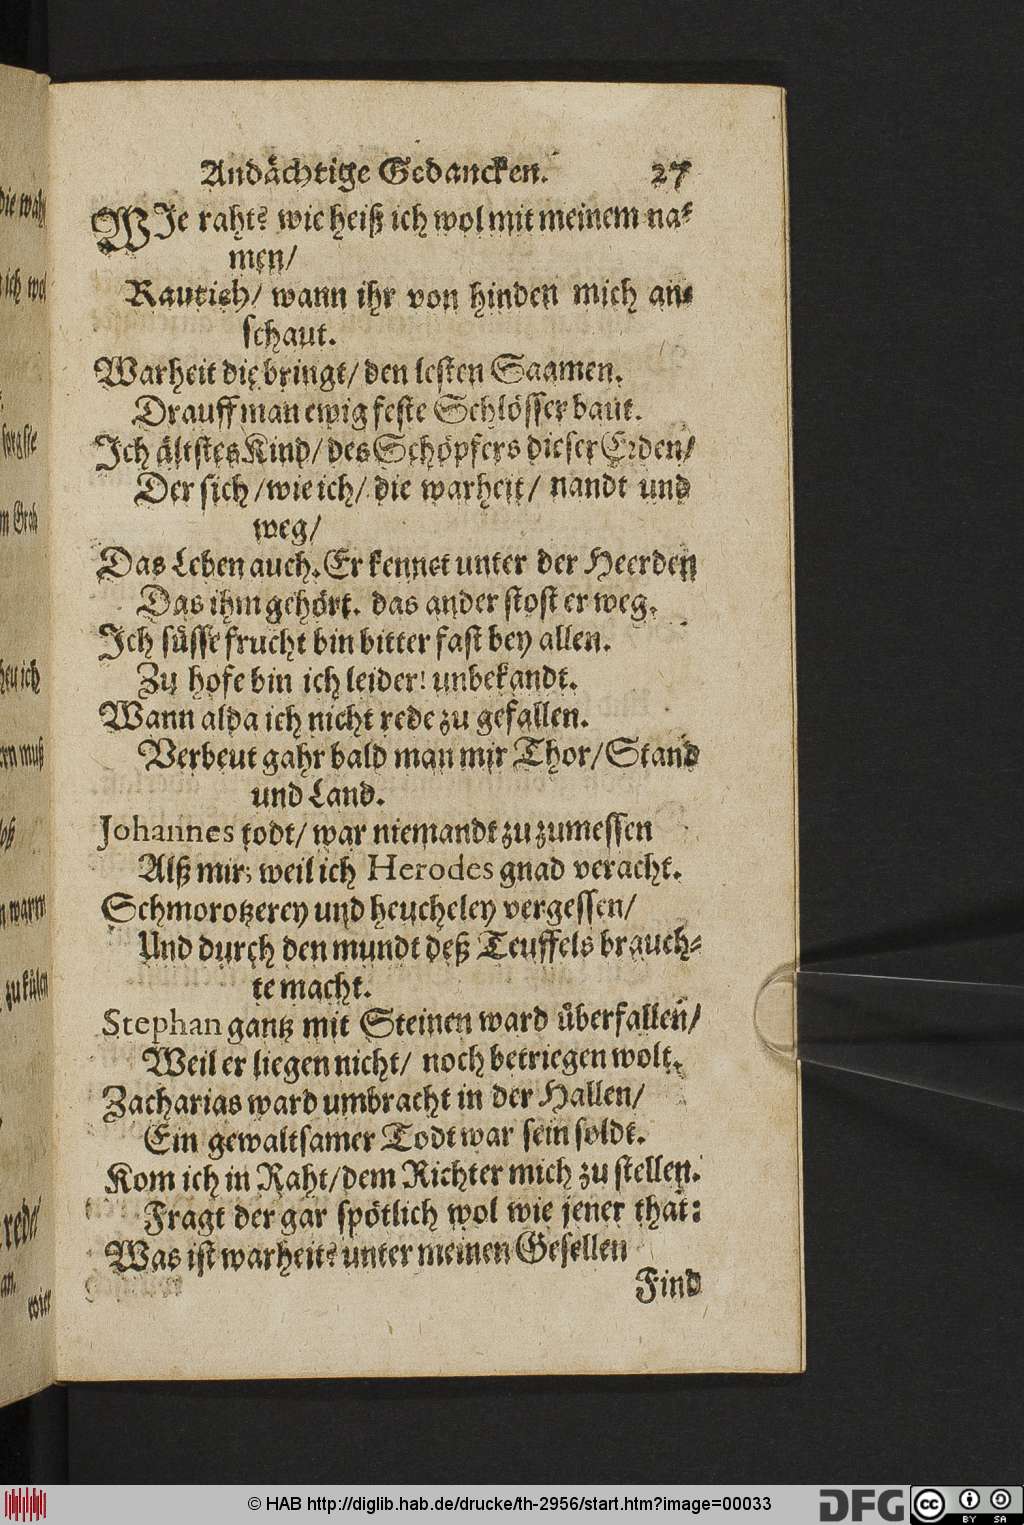 Andächtige Gedancken. 27
WJe raht? wie heiß ich wol mit meinem na-
men/
Rautieh/ wann ihr von hinden mich an-
schaut.
Warheit die bringt/ den lesten Saamen.
Drauff man ewig feste Schlösser baut.
Jch ältstes Kind/ des Schöpfers dieser Erden/
Der sich/ wie ich/ die warheit/ nandt und
weg/
Das Leben auch. Er kennet unter der Heerden
Das ihm gehört. das ander stost er weg.
Jch süsse frucht bin bitter fast bey allen.
Zu hofe bin ich leider! unbekandt.
Wann alda ich nicht rede zu gefallen.
Verbeut gahr bald man mir Thor/ Stand
und Land.
Johannes todt/ war niemandt zu zumessen
Alß mir; weil ich Herodes gnad veracht.
Schmorotzerey und heucheley vergessen/
Und durch den mundt deß Teuffels brauch-
te macht.
Stephan gantz mit Steinen ward überfallen/
Weil er liegen nicht/ noch betriegen wolt.
Zacharias ward umbracht in der Hallen/
Ein gewaltsamer Todt war sein soldt.
Kom ich in Raht/ dem Richter mich zu stellen.
Fragt der gar spötlich wol wie jener that:
Was ist warheit? unter meinen Gesellen
Find
© HAB http://diglib.hab.de/drucke/th-2956/start.htm?image=00033
DFG
cc BY SA